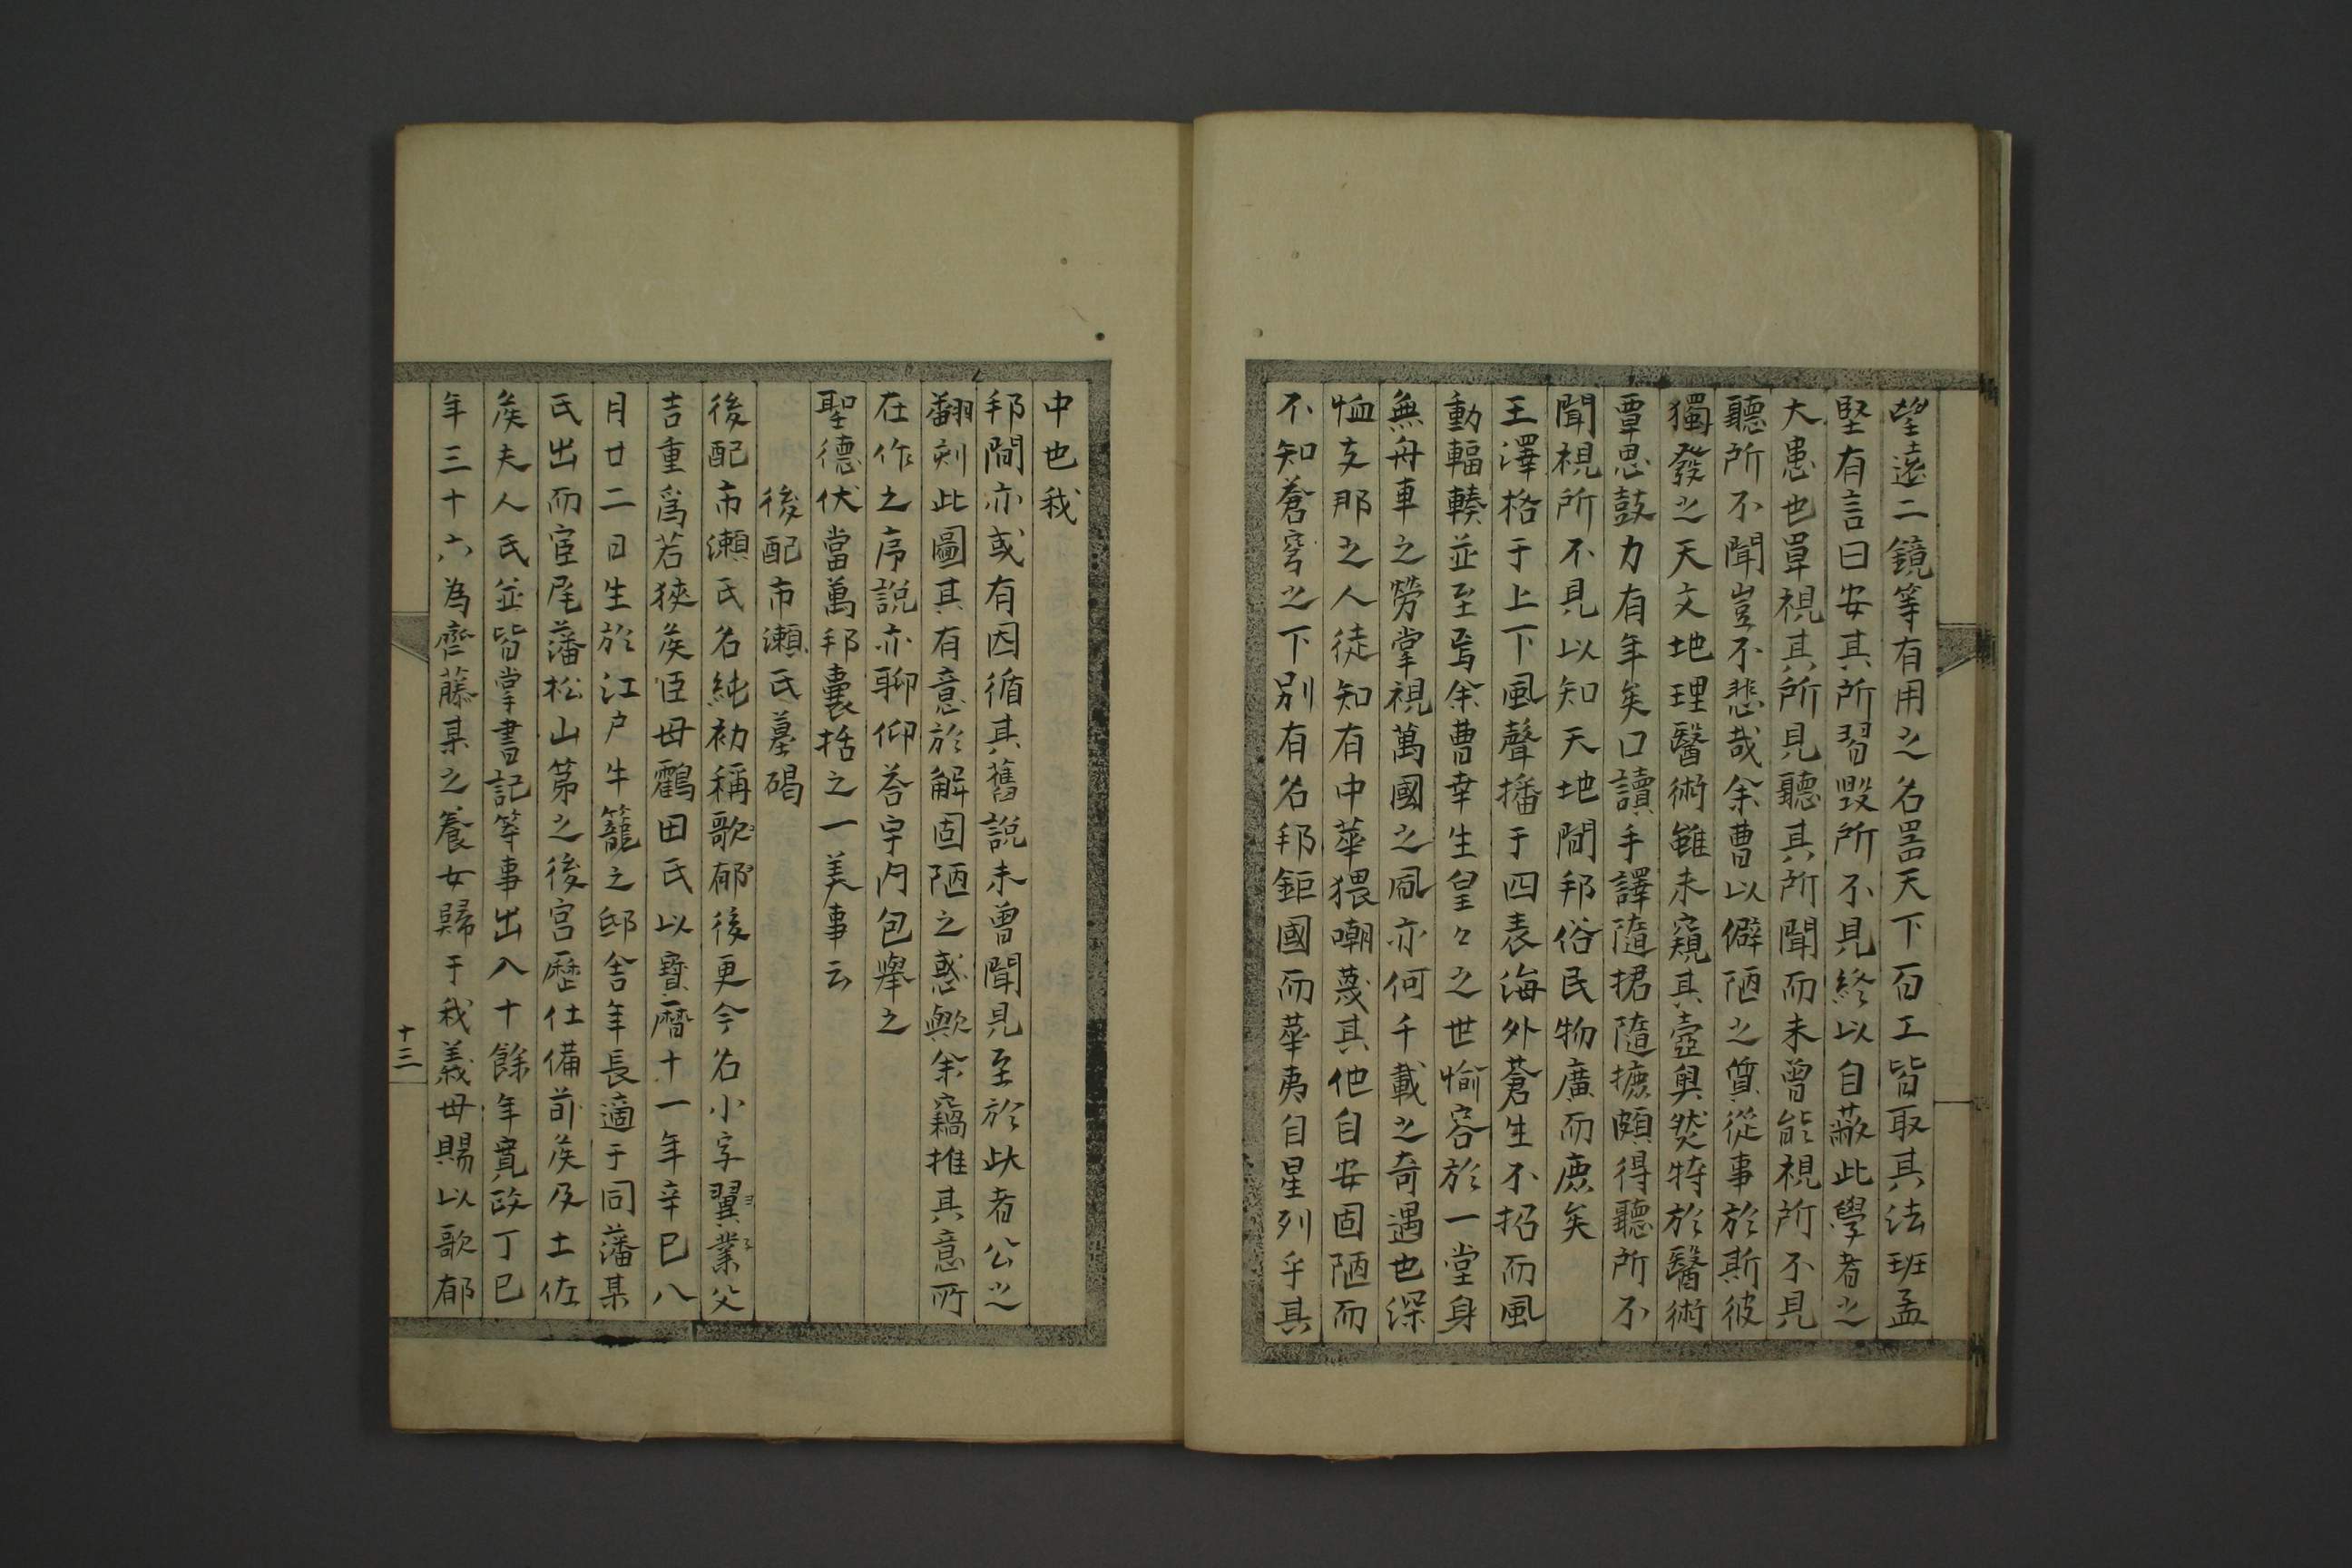 望遠二鏡等有用之名噐天下百工皆取其法班孟
堅有言曰安其所習毀所不見終以自蔽此學者之
大患也單視其所見聽其所聞而未曾能視所不見
聽所不聞豈不悲哉余曹以僻陋之質從事於斯彼
獨發之天文地理醫術雖未窺其壺奧然特於醫術
覃思鼓力有年矣口讀手譯隨捃隨摭頗得聽所不
聞視所不見以知天地間邦俗民物廣而庶矣
王澤格于上下風聲播于四表海外蒼生不招而風
動輻輳並至焉余曹幸生皇々之世愉容於一堂身
無舟車之勞掌視萬國之風亦何千載之奇遇也深
恤支那之人徒知有中華猥嘲蔑其他自安固陋而
不知蒼穹之下別有名邦鉅國而華夷自星列乎其
中也我
邦間亦或有因循其舊說未曾聞見至於此者公之
翻刻此圖其有意於解固陋之惑歟余竊推其意所
在作之序說亦聊仰荅宇內包舉之
聖德伏當萬邦囊括之一美事云
後配市瀨氏墓碣
後配市瀨氏名純初稱歌郁後更今名小字翼業父
吉重爲若狹矦臣母鸖田氏以寶曆十一年辛巳八
月廿二日生於江戶牛籠之邸舍年長適于同藩某
氏出而宦尾藩松山第之後宮歷仕備前矦及土佐
矦夫人氏並皆掌書記等事出入十餘年寬政丁巳
年三十六為齊藤某之養女歸于我義母賜以歌郁
十三